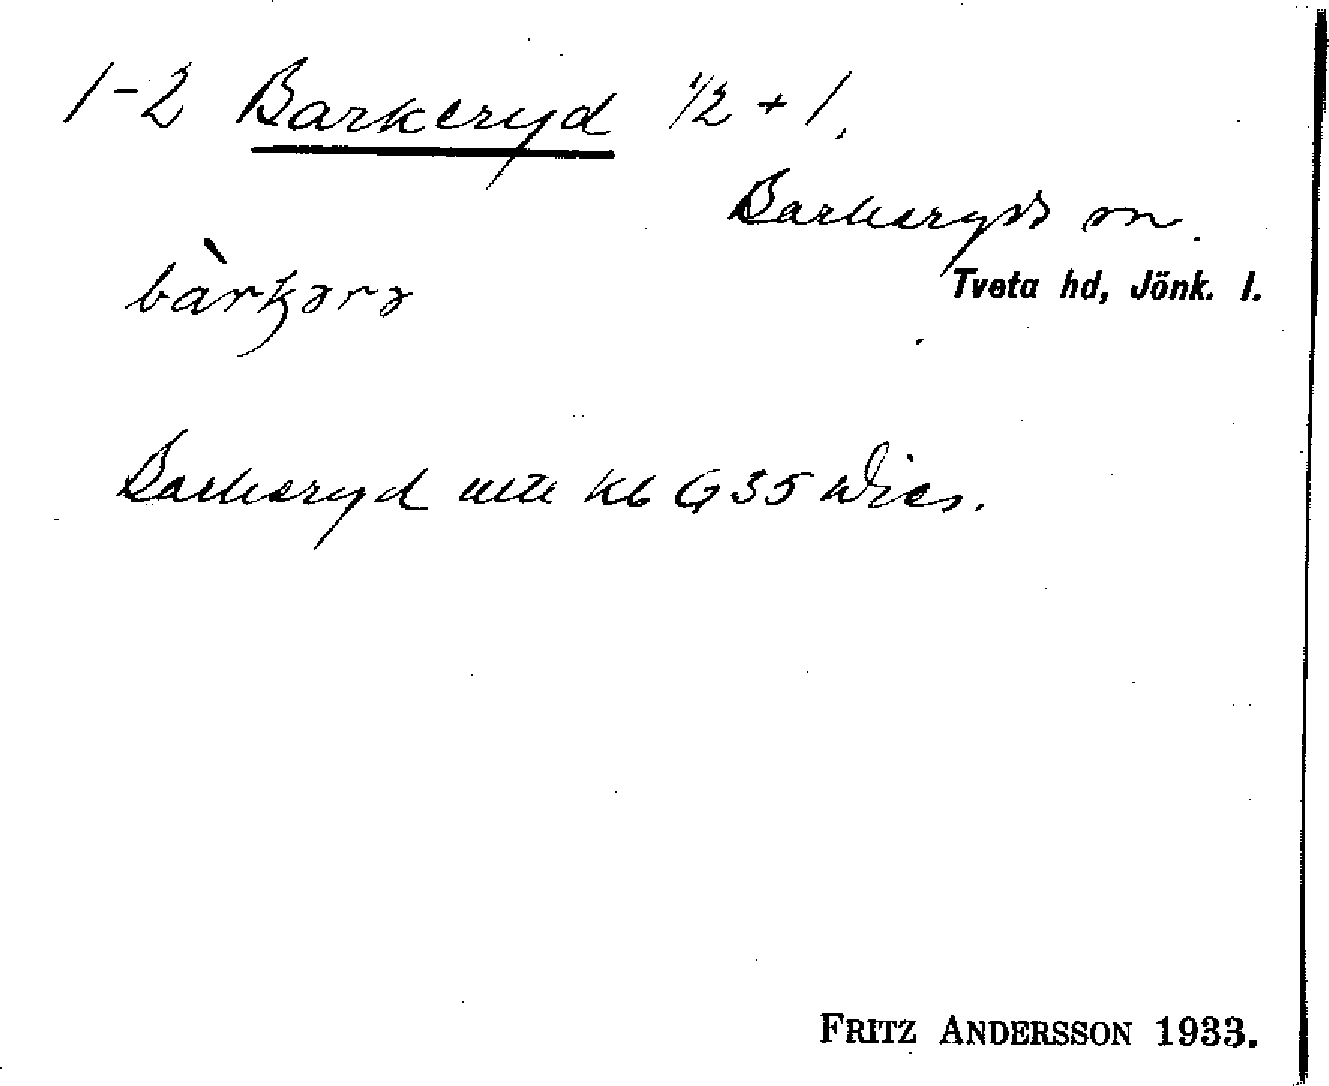 1-2 Barkeryd 1/2 + 1.
Barkeryds sn.
Tveta hd, Jönk. l.
bàrkərə
Barkeryd
FRITZ ANDERSSON 1933.